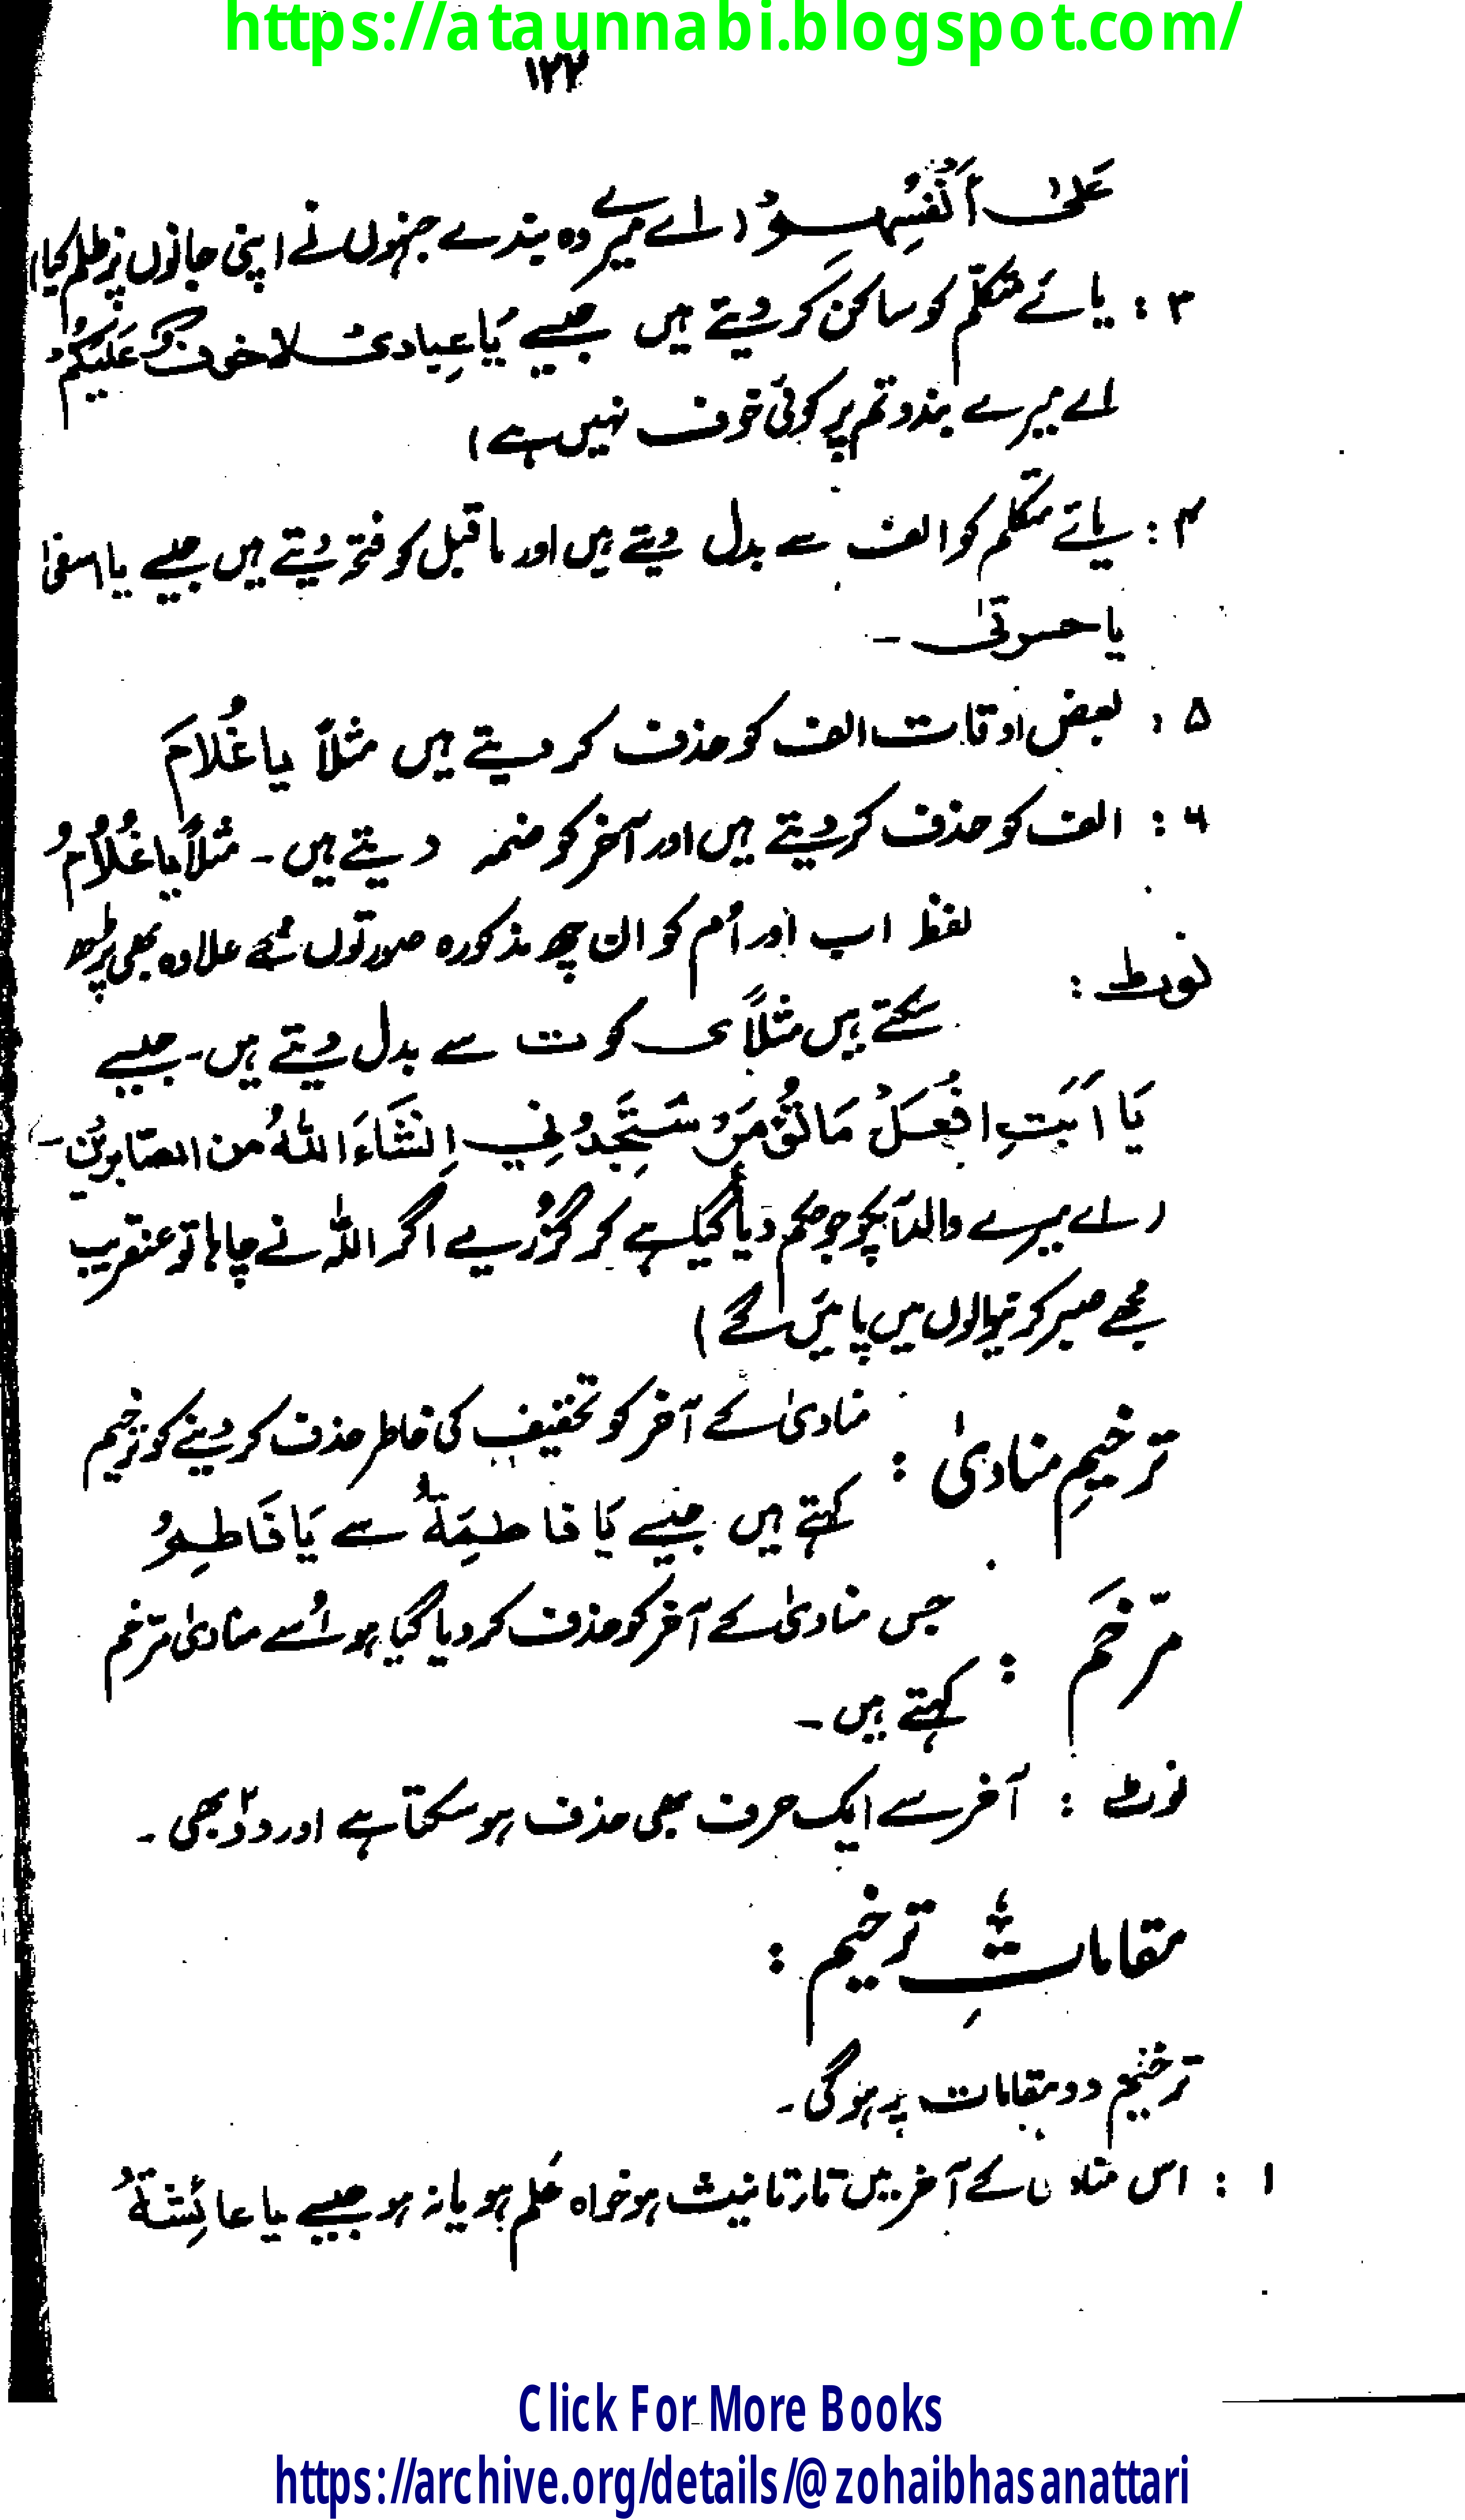 https://ataunnabi.blogspot.com/
۱۲۲
عَلىٰ اَنْفُسِهِمْ (اے میرے وہ بندے جنہوں نے اپنی جانوں پر ظلم کیا)
۳ : یائے متکلم کو ساکن کر دیتے ہیں جیسے یَا عِبادیْ لا خوفٌ عَلَیْکُمْ
اے میرے بندو تم پر کوئی خوف نہیں ہے)
۴ : یائے متکلم کو الف سے بدل دیتے ہیں اور ماقبل کو فتحہ دیتے ہیں جیسے یا اسفیٰ
یا حسرتیٰ ۔
۵ : بعض اوقات الف کو حذف کر دیتے ہیں مثلاً یا غُلامَ
۶ : الف کو حذف کر دیتے ہیں اور آخر کو ضمہ دیتے ہیں ۔ مثلاً یا غُلَامُ
نوٹ : لفظ اب اور اُم کو ان چھ مذکورہ صورتوں کے علاوہ بھی پڑھ
سکتے ہیں مثلاً ی کو ت سے بدل دیتے ہیں ۔ جیسے
یَا اَبَتِ افْعَلْ مَا تُؤْمَرْ سَتَجِدُنِی اِنْشَاءَ اللّٰهُ من الصّابرین ۔
(اے میرے والد آپکو جو حکم دیا گیا ہے کر گزریے اگر اللہ نے چاہا تو عنقریب
مجھے صبر کرنیوالوں میں پائیں گے)
ترخیمِ منادیٰ : منادیٰ کے آخر کو تخفیف کی خاطر حذف کر دینے کو ترخیم
کہتے ہیں جیسے یَا فاطِمَةُ سے یَا فَاطِمُ
مرّخم : جس منادیٰ کے آخر کو حذف کر دیا گیا ہو اُسے منادیٰ مرّخم
کہتے ہیں ۔
نوٹ : آخر سے ایک حرف بھی حذف ہو سکتا ہے اور دو بھی ۔
مقاماتِ ترخیم :
ترخیم دو مقامات پر ہو گی ۔
۱ : اس منادیٰ کے آخر میں تار تانیث ہو خواہ عَلم ہو یا نہ ہو جیسے یا عائِشَةُ
Click For More Books
https://archive.org/details/@zohaibhasanattari